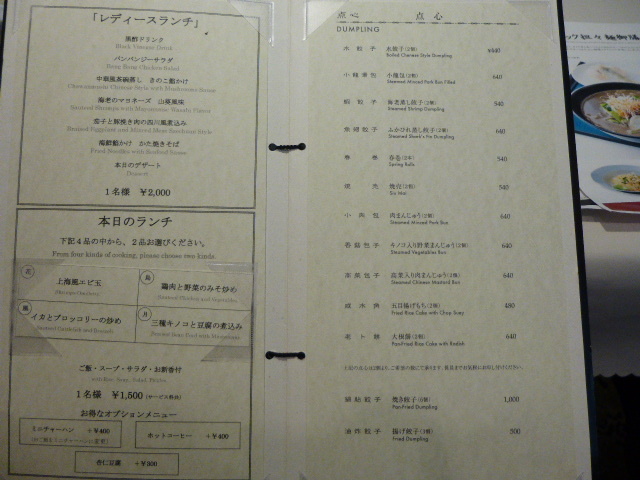 「レディースランチ」
黒酢ドリンク
Black Vinegar Drink
バンバンジーサラダ
Bang Bang Chicken Salad
中華風茶碗蒸し きのこ餡かけ
Chawanmushi Chinese Style with Mushroom Sauce
海老のマヨネーズ 山葵風味
Sauteed Shrimps with Mayonnaise, Wasabi Flavor
茄子と豚挽き肉の四川風煮込み
Braised Eggplant and Minced Meat Szechuan Style
海鮮餡かけ かた焼きそば
Fried Noodles with Seafood Sauce
本日のデザート
Dessert
1名様 ￥2,000
本日のランチ
下記4品の中から、2品お選びください。
From four kinds of cooking, please choose two kinds.
上海風エビ玉
鶏肉と野菜のみそ炒め
イカとブロッコリーの炒め
三種キノコと豆腐の煮込み
ご飯・スープ・サラダ・お新香付
with Rice, Soup, Salad, Pickles
1名様 ￥1,500 (サービス料共)
お得なオプションメニュー
ミニチャーハン +￥400
ホットコーヒー +￥400
杏仁豆腐 +￥300
点心 点心
DUMPLING
水餃子 水餃子(2個) ¥640
Boiled Chinese Style Dumpling
小籠湯包 小籠包(2個) 640
Steamed Minced Pork Bun Filled
蝦餃子 海老蒸し餃子(2個) 540
Steamed Shrimp Dumpling
魚翅餃子 ふかひれ蒸し餃子(2個) 640
Steamed Shark's Fin Dumpling
春巻 春巻(2本) 540
Spring Rolls
焼売 焼売(2個) 540
Siu Mai
小肉包 肉まんじゅう(2個) 640
Steamed Minced Pork Bun
香菇包子 キノコ入り野菜まんじゅう(2個) 640
Steamed Vegetables Bun
高菜包子 高菜入り肉まんじゅう(2個) 640
Steamed Chinese Mustard Bun
五目揚げもち(2個) 480
Fried Rice Cake with Chop Suey
大根餅(2個) 640
Pan-Fried Rice Cake with Radish
鍋貼餃子 焼き餃子(6個) 1,000
Pan-Fried Dumpling
油炸餃子 揚げ餃子(3個) 500
Fried Dumpling